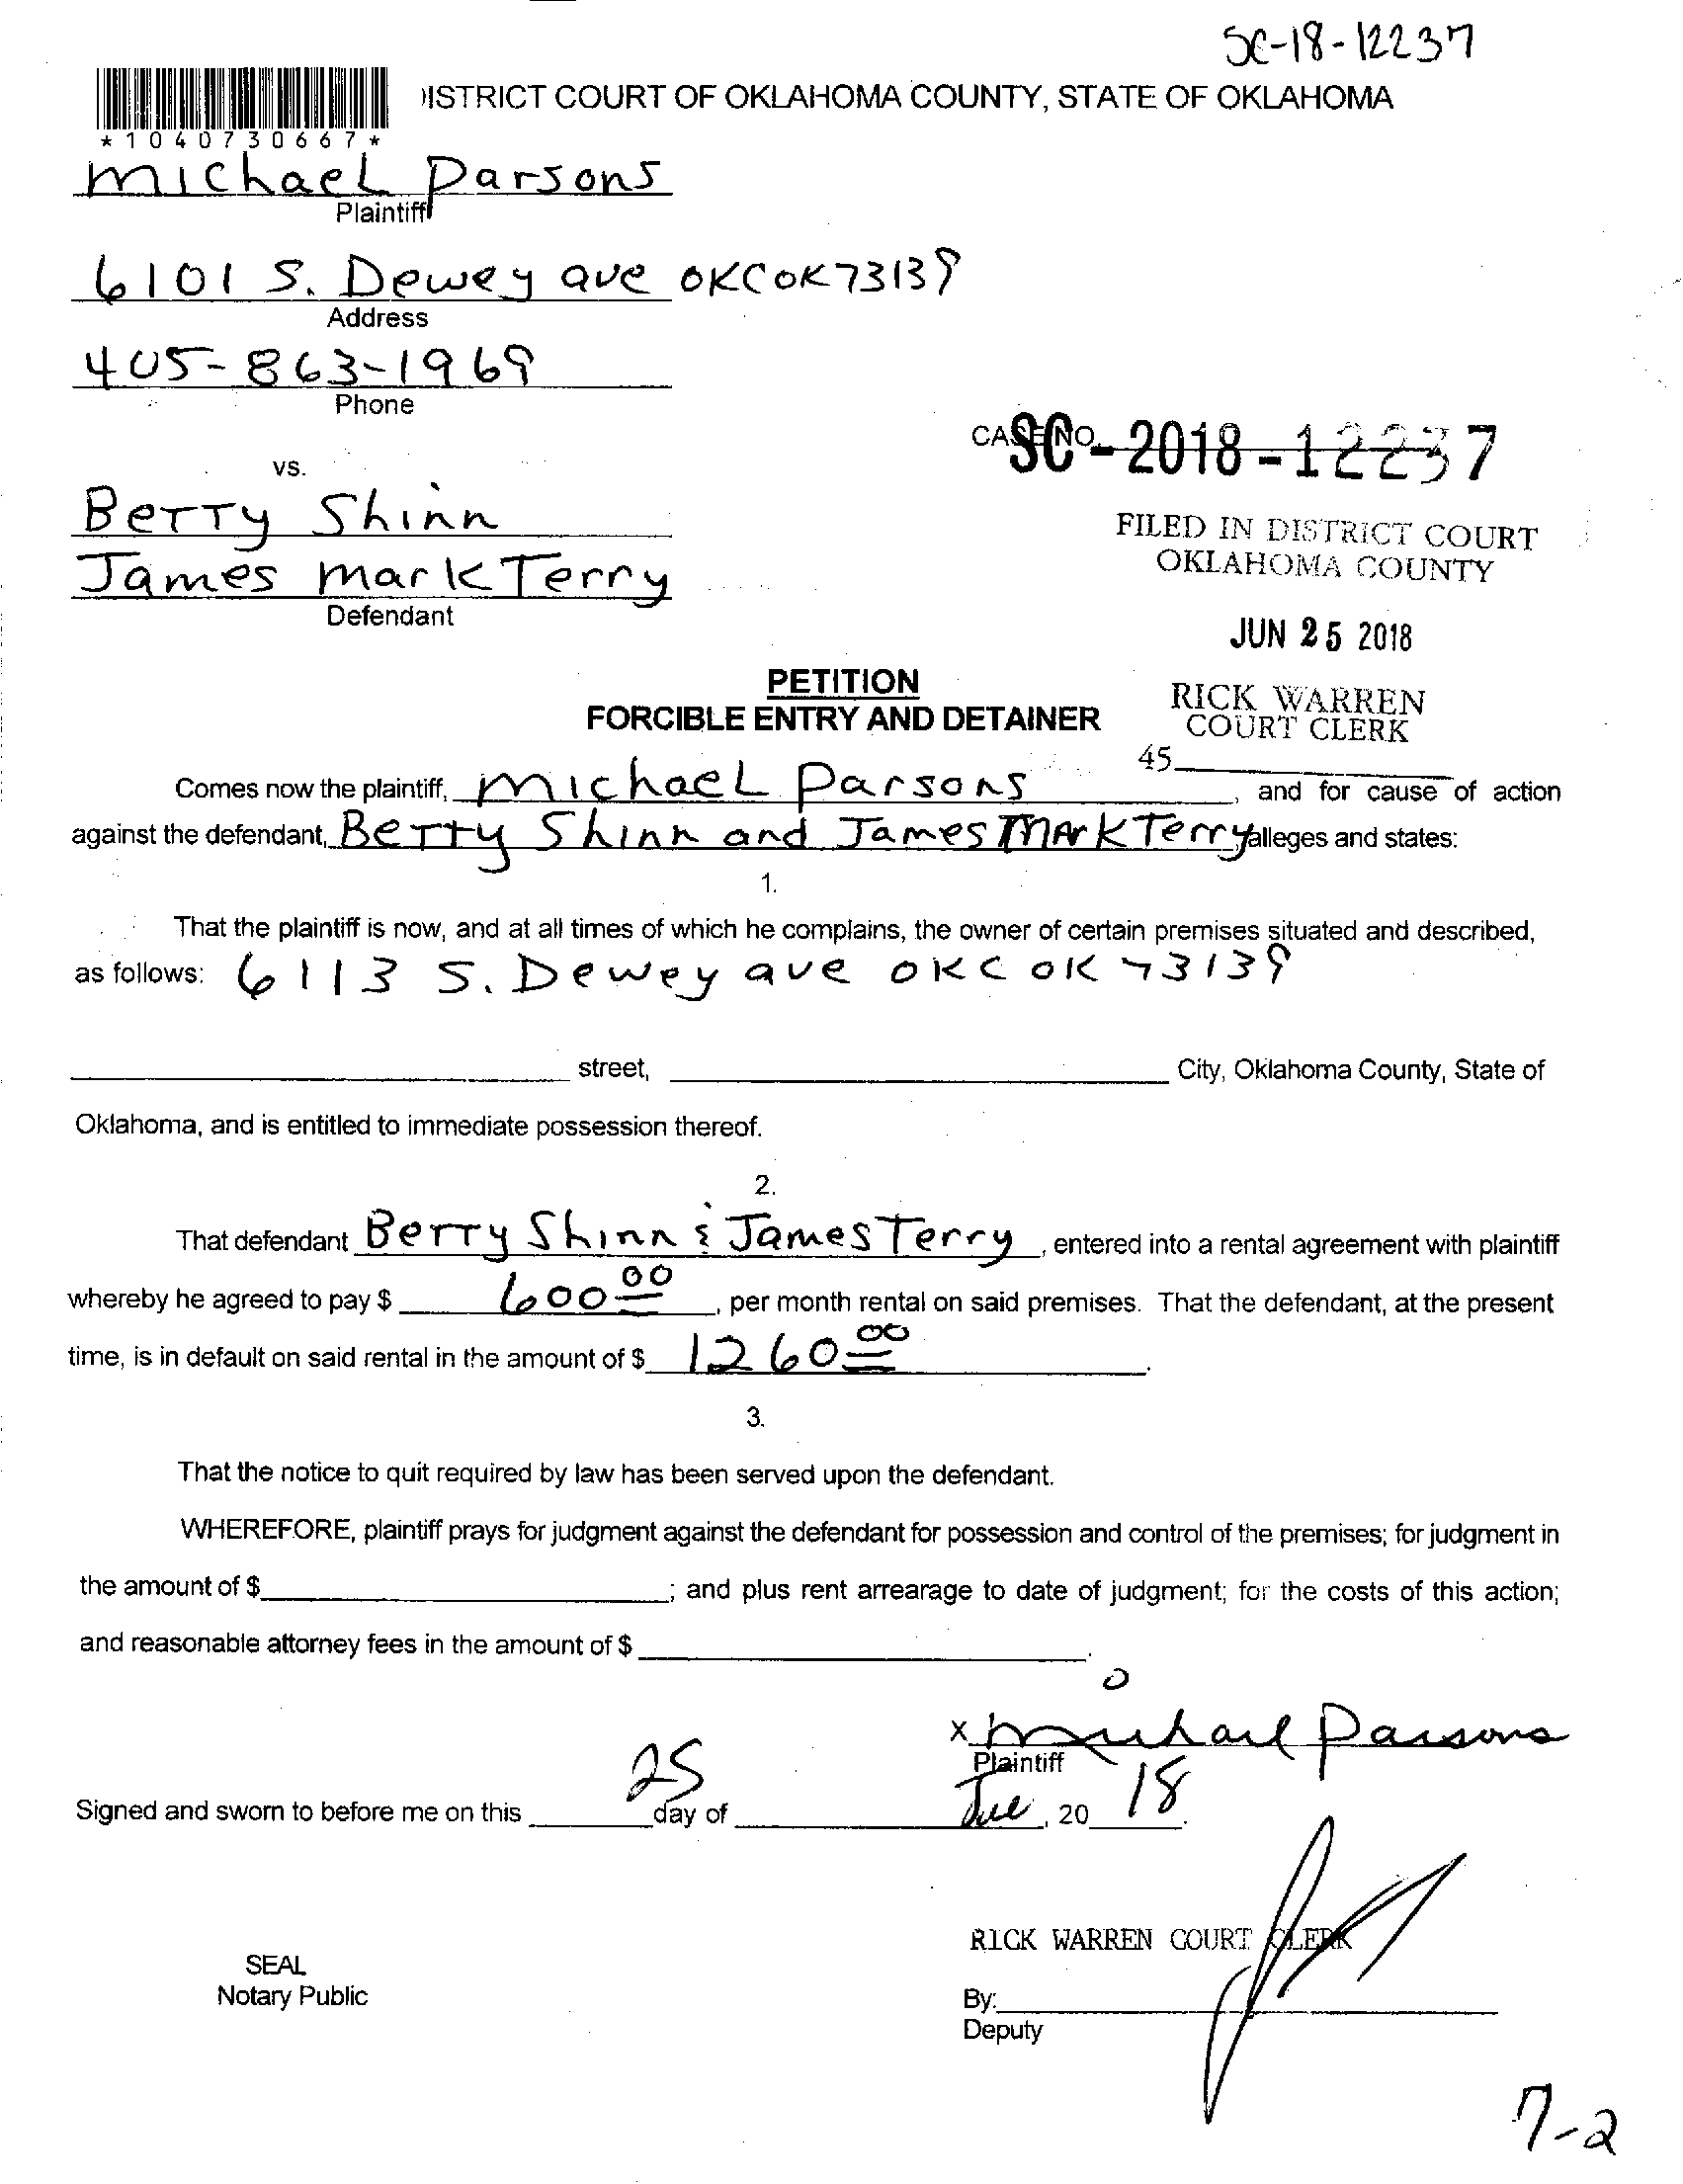 SC-18-12237
DISTRICT COURT OF OKLAHOMA COUNTY, STATE OF OKLAHOMA
*1040730667*
Michael Parsons
Plaintiff
6101 S. Dewey ave OKC OK 73139
Address
405-863-1969
Phone
CASE NO.
SC - 2018 - 12237
vs.
Betty Shinn
James Mark Terry
Defendant
FILED IN DISTRICT COURT
OKLAHOMA COUNTY
JUN 25 2018
RICK WARREN
COURT CLERK
45
PETITION
FORCIBLE ENTRY AND DETAINER
Comes now the plaintiff, Michael Parsons, and for cause of action
against the defendant, Betty Shinn and James Mark Terry, alleges and states:
1.
That the plaintiff is now, and at all times of which he complains, the owner of certain premises situated and described,
as follows: 6113 S. Dewey ave OKC OK 73139
street, City, Oklahoma County, State of
Oklahoma, and is entitled to immediate possession thereof.
2.
That defendant Betty Shinn & James Terry, entered into a rental agreement with plaintiff
whereby he agreed to pay $ 600.00, per month rental on said premises. That the defendant, at the present
time, is in default on said rental in the amount of $ 1260.00.
3.
That the notice to quit required by law has been served upon the defendant.
WHEREFORE, plaintiff prays for judgment against the defendant for possession and control of the premises; for judgment in
the amount of $ ; and plus rent arrearage to date of judgment; for the costs of this action;
and reasonable attorney fees in the amount of $ .
x Michael Parsons
Plaintiff
Signed and sworn to before me on this 25 day of Jue, 20 18.
RICK WARREN COURT CLERK
SEAL
Notary Public
By:
Deputy
7-2